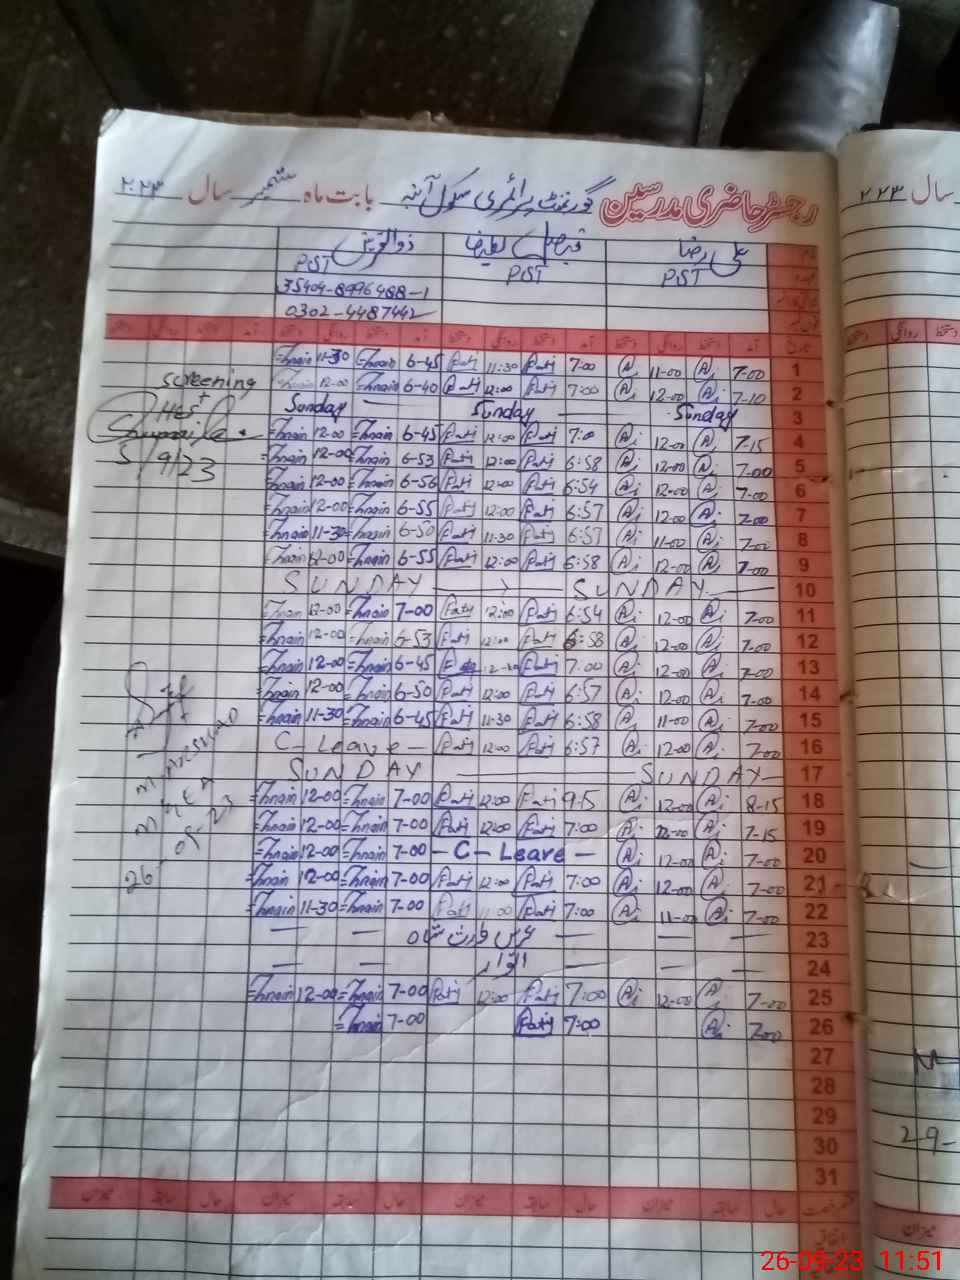 رجسٹر حاضری مدرسین گورنمنٹ پرائمری سکول آنبہ بابت ماہ ستمبر سال ۲۰۲۳
سال ۲۰۲۳
علی رضا ذوالقرنین
PST PST PST
35404-8996488-1
0302-4487442
=Znain 11-30 =Znain 6-45 Fatj 11:30 Fatj 7:00 Ai 11-00 Ai 7-00 1
Znain 12-00 =Znain 6-40 Fatj 12:00 Fatj 7:00 Ai 12-00 Ai 7-10 2
Screening
Sunday Sunday Sunday 3
=Znain 12-00 =Znain 6-45 Fatj 12:00 Fatj 7:0 Ai 12-00 Ai 7-15 4
=Znain 12-00 =Znain 6-53 Fatj 12:00 Fatj 6:58 Ai 12-00 Ai 7-00 5
5/9/23
=Znain 12-00 =Znain 6-56 Fatj 12:00 Fatj 6:54 Ai 12-00 Ai 7-00 6
=Znain 12-00 =Znain 6-55 Fatj 12:00 Fatj 6:57 Ai 12-00 Ai 7-00 7
=Znain 11-30 =Znain 6-50 Fatj 11:30 Fatj 6:57 Ai 11-00 Ai 7-00 8
=Znain 12-00 =Znain 6-55 Fatj 12:00 Fatj 6:58 Ai 12-00 Ai 7-00 9
SUNDAY SUNDAY 10
Znain 12-00 =Znain 7-00 Fatj 12:00 Fatj 6:54 Ai 12-00 Ai 7-00 11
=Znain 12-00 =Znain 6-53 Fatj 12:00 Fatj 6:58 Ai 12-00 Ai 7-00 12
=Znain 12-00 =Znain 6-45 Fatj 7:00 Ai 12-00 Ai 7-00 13
=Znain 12-00 =Znain 6-50 Fatj 12:00 Fatj 6:57 Ai 12-00 Ai 7-00 14
=Znain 11-30 =Znain 6-45 Fatj 11:30 Fatj 6:58 Ai 11-00 Ai 7-00 15
C-Leave- Fatj 12:00 Fatj 6:57 Ai 12-00 Ai 7-00 16
SUNDAY SUNDAY 17
=Znain 12-00 =Znain 7-00 Fatj 12:00 Fatj 9-5 Ai 12-00 Ai 8-15 18
=Znain 12-00 =Znain 7-00 Fatj 12:00 Fatj 7:00 Ai 12-00 Ai 7-15 19
=Znain 12-00 =Znain 7-00 -C-Leave- Ai 12-00 Ai 7-00 20
=Znain 12-00 =Znain 7-00 Fatj 12:00 Fatj 7:00 Ai 12-00 Ai 7-00 21
=Znain 11-30 =Znain 7-00 Fatj 11:00 Fatj 7:00 Ai 11-00 Ai 7-00 22
MEA
26-09-23
عرس وارث شاہ 23
اتوار 24
=Znain 12-00 =Znain 7-00 Fatj 12:00 Fatj 7:00 Ai 12-00 Ai 7-00 25
=Znain 7-00 Fatj 7:00 Ai 7-00 26
27
28
29
30
2-9-
31
حال سابقہ میزان حال سابقہ میزان حال سابقہ میزان حال سابقہ میزان
میزان
26-09-23 11:51